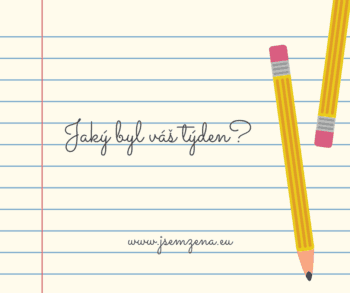 Jaký byl váš týden?
www.jsemzena.eu